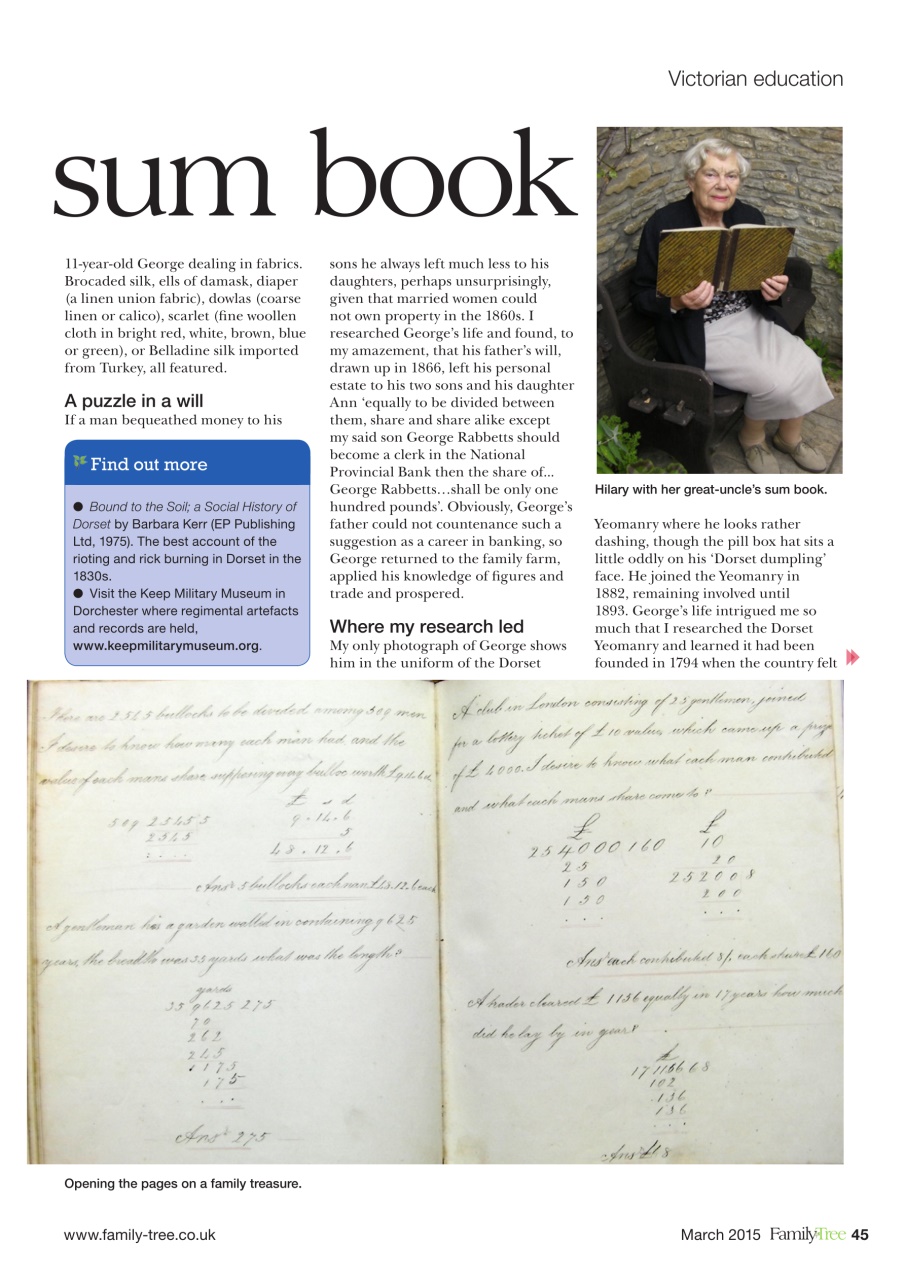 Victorian education
sum book
11-year-old George dealing in fabrics.
Brocaded silk, ells of damask, diaper
(a linen union fabric), dowlas (coarse
linen or calico), scarlet (fine woollen
cloth in bright red, white, brown, blue
or green), or Belladine silk imported
from Turkey, all featured.
A puzzle in a will
If a man bequeathed money to his
Find out more
● Bound to the Soil; a Social History of
Dorset by Barbara Kerr (EP Publishing
Ltd, 1975). The best account of the
rioting and rick burning in Dorset in the
1830s.
● Visit the Keep Military Museum in
Dorchester where regimental artefacts
and records are held,
www.keepmilitarymuseum.org.
sons he always left much less to his
daughters, perhaps unsurprisingly,
given that married women could
not own property in the 1860s. I
researched George's life and found, to
my amazement, that his father's will,
drawn up in 1866, left his personal
estate to his two sons and his daughter
Ann 'equally to be divided between
them, share and share alike except
my said son George Rabbetts should
become a clerk in the National
Provincial Bank then the share of...
George Rabbetts…shall be only one
hundred pounds'. Obviously, George's
father could not countenance such a
suggestion as a career in banking, so
George returned to the family farm,
applied his knowledge of figures and
trade and prospered.
Where my research led
My only photograph of George shows
him in the uniform of the Dorset
Hilary with her great-uncle's sum book.
Yeomanry where he looks rather
dashing, though the pill box hat sits a
little oddly on his 'Dorset dumpling'
face. He joined the Yeomanry in
1882, remaining involved until
1893. George's life intrigued me so
much that I researched the Dorset
Yeomanry and learned it had been
founded in 1794 when the country felt
There are 2545 bullocks to be divided among 509 men
I desire to know how many each man had, and the
value of each mans share supposing every bulloc worth £9.14.6
£ s d
509 2545 5 9.14.6
2545 5
48.12.6
Ansr 5 bullocks each man £48.12.6 each
A gentleman has a garden walled in containing 9625
the breadth was 35 yards what was the length?
yards
35 9625 275
70
262
245
175
175
Ansr 275
A club in London consisting of 25 gentlemen, joined
for a lottery ticket of £10 value, which came up a prize
of £4000. I desire to know what each man contributed
and what each mans share come to?
£ £
25 4000 160 10
25 20
150 25 200 8
150 200
Ansr each contributed 8/. each share £160
A trader cleared £1156 equally in 17 years how much
did he lay by in year?
£
17 1156 68
102
136
136
Ansr £68
Opening the pages on a family treasure.
www.family-tree.co.uk
March 2015 FamilyTree 45